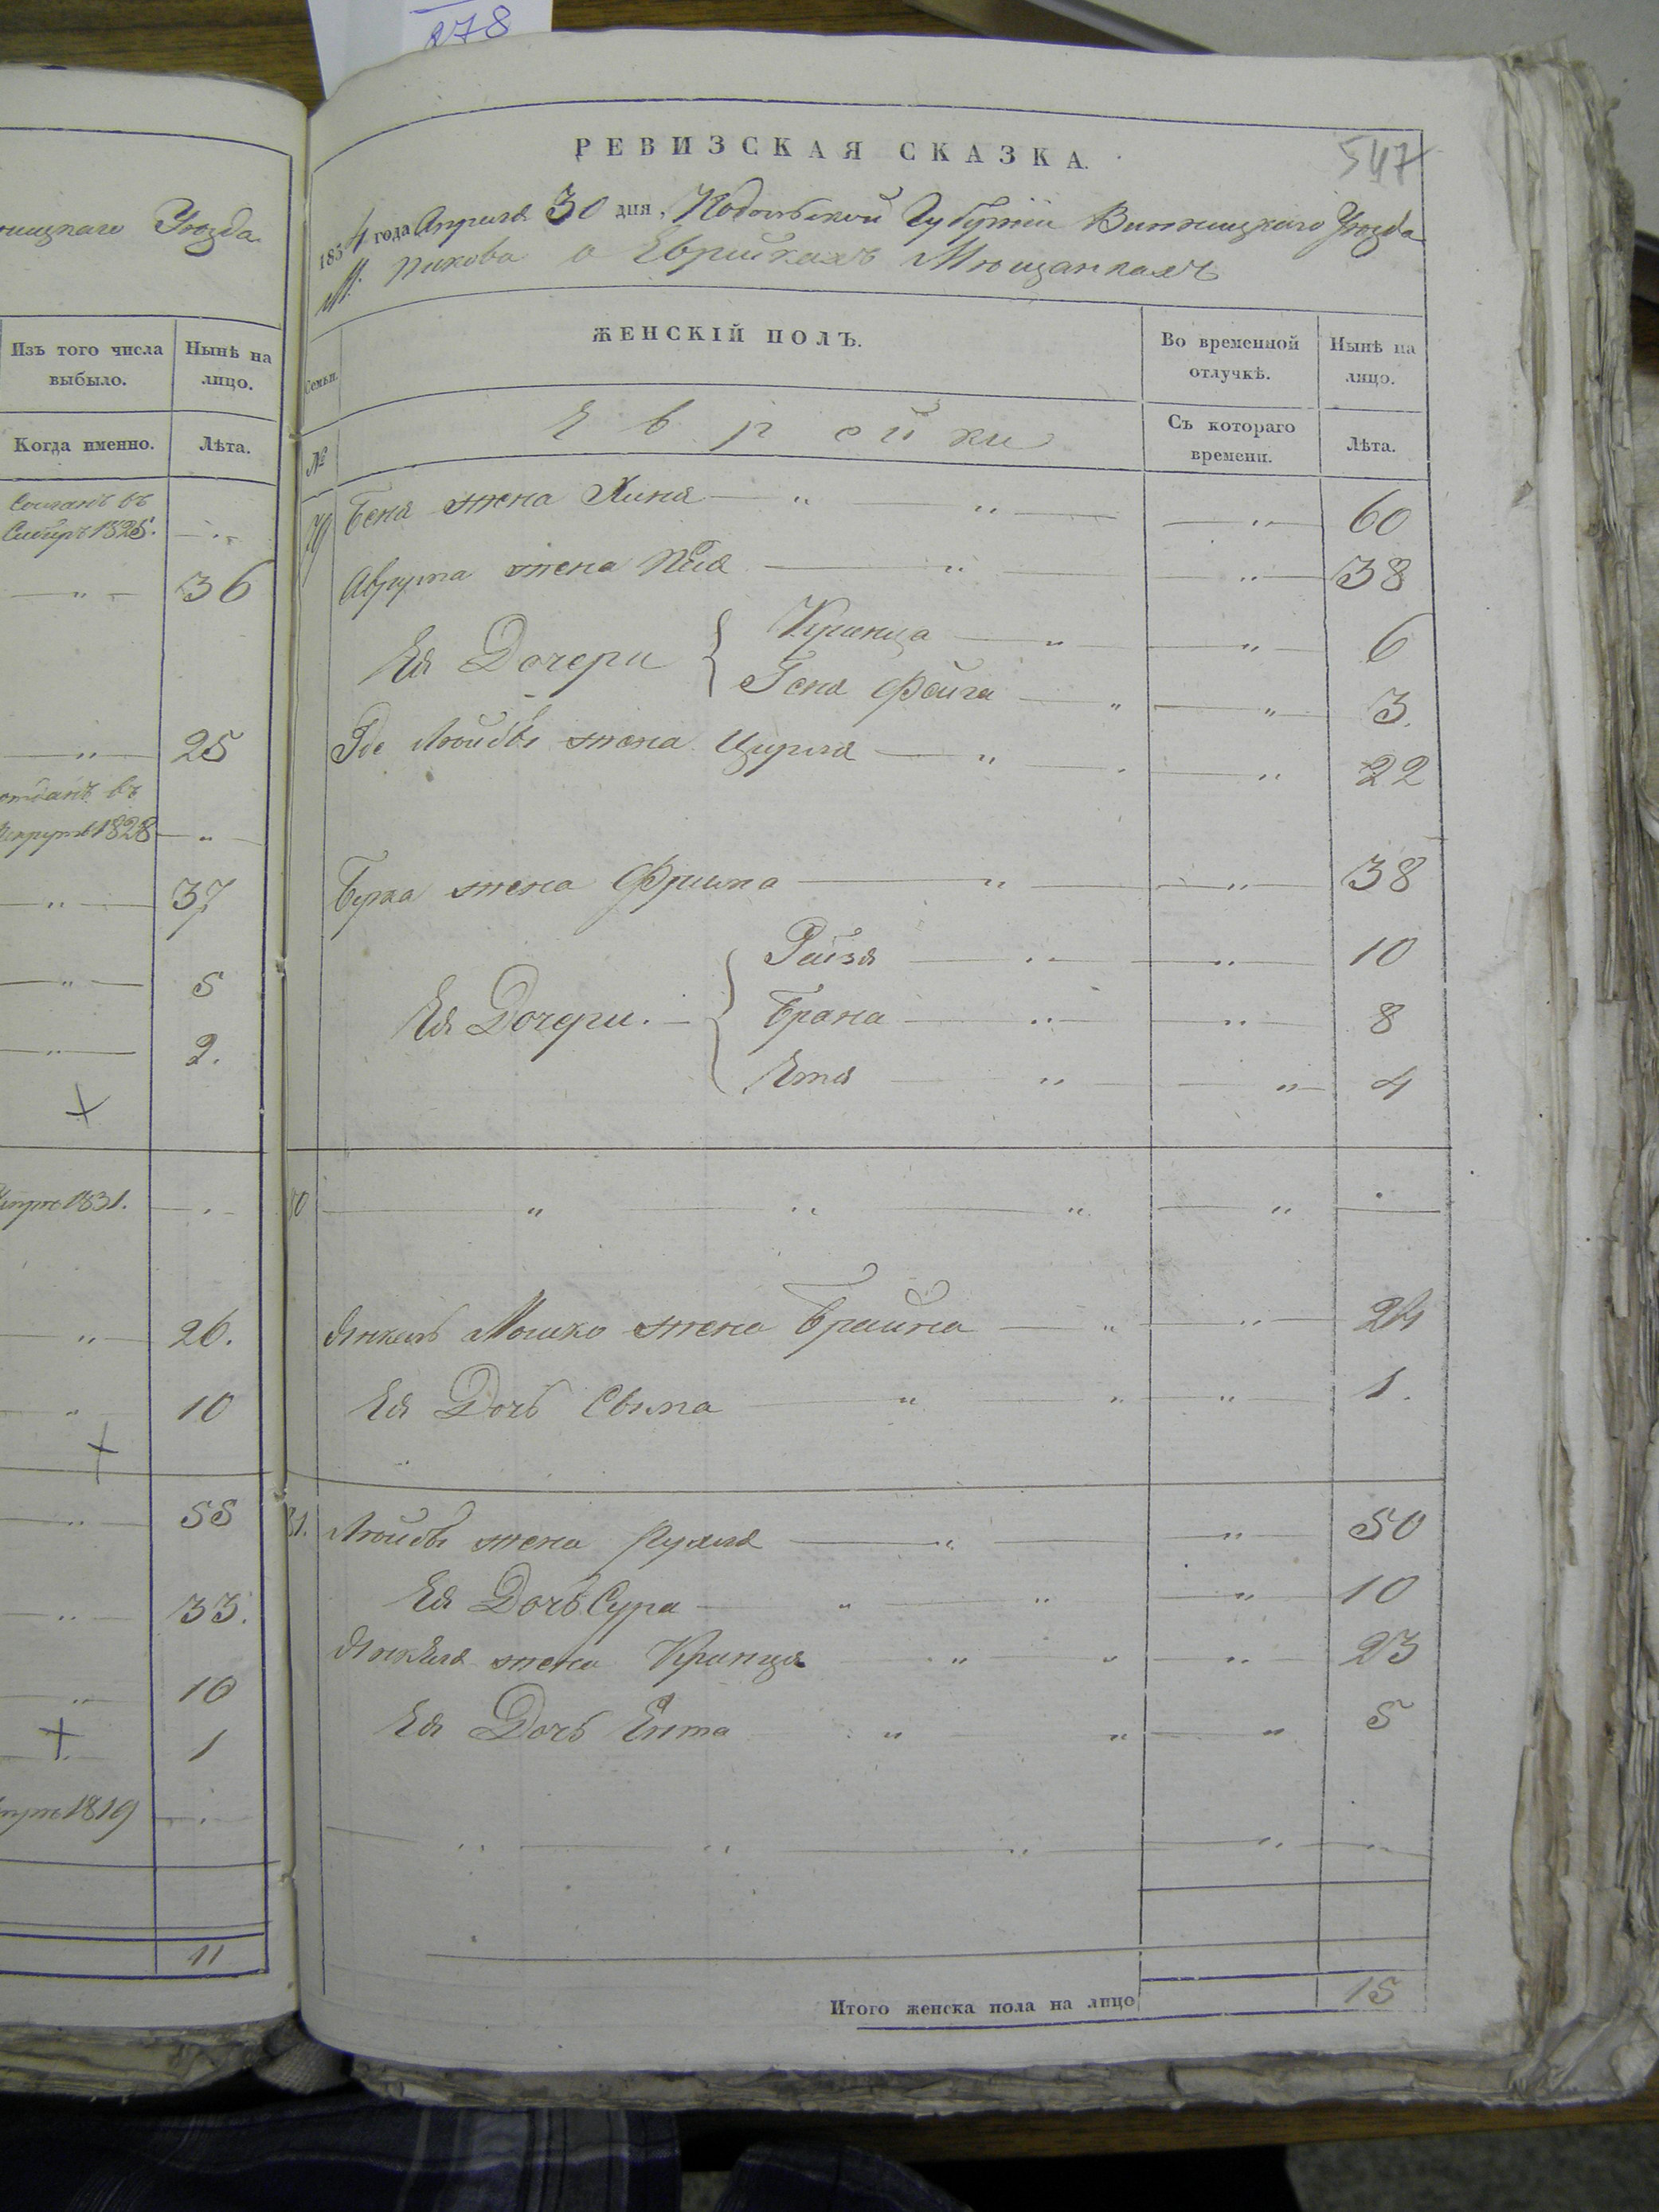 278
ницкаго Уѣзда.
Изъ того числа выбыло.
Нынѣ на лицо.
Когда именно.
Лѣта.
Сосланъ въ
Сибирь 1825.
36
25
отданъ въ
рекруты 1828
37
5
2.
1831.
26.
10
55
33.
10
1
1819
11
РЕВИЗСКАЯ СКАЗКА.
547
1854 года Апреля 30 дня, Подольской Губерніи Винницкаго Уѣзда
М. Пикова о Еврейкахъ Мѣщанкахъ
Семьи.
ЖЕНСКІЙ ПОЛЪ.
Во временной отлучкѣ.
Нынѣ на лицо.
№
Еврейки
Съ котораго времени.
Лѣта.
Беня жена Хиня 60
жена 38
Ея Дочери Криница 6
Геня Фейга 3.
Лейбы жена Цирля 22
Берка жена Фрима 38
Ея Дочери. Райзя 10
Брана 8
Етя 4
80
Янкель Мошко жена Брайна 24
Ея Дочь 1.
81. Лейбы жена Рухля 50
Ея Дочь Сура 10
Янкеля жена Криница 23
Ея Дочь Ента 5
Итого женска пола на лицо 15